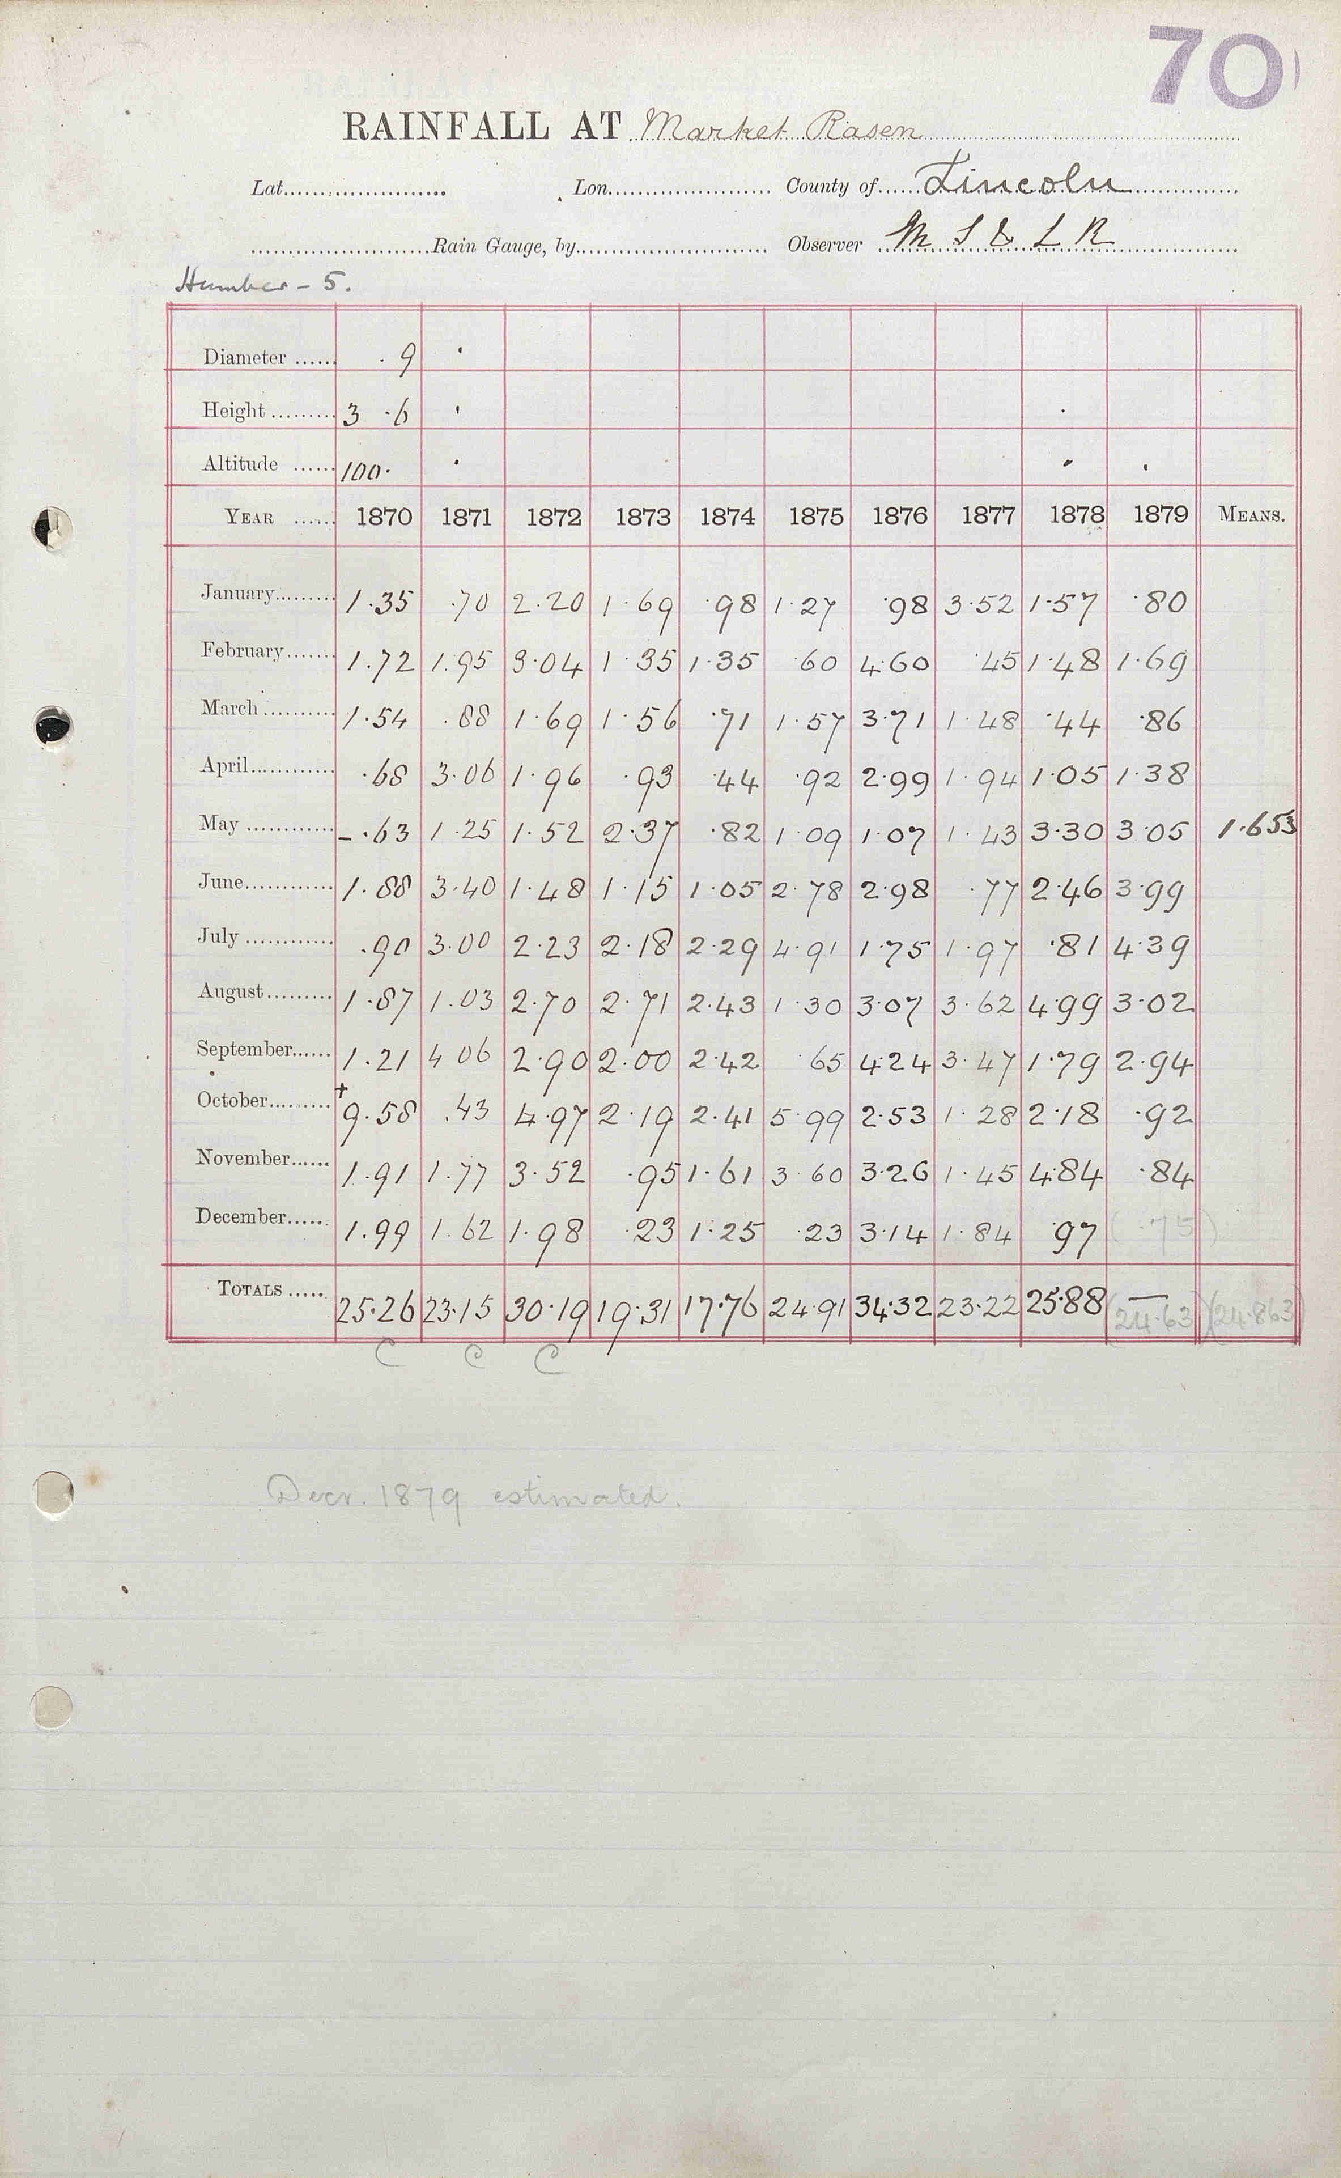 70
RAINFALL AT Market Rasen
Lat. Lon. County of Lincoln
Rain Gauge, by Observer M S & L R
Humber - 5.
Diameter ...... . 9 .
Height ......... 3 .6 . .
Altitude ...... 100. . . .
YEAR ...... 1870 1871 1872 1873 1874 1875 1876 1877 1878 1879 MEANS.
January ......... 1.35 .70 2.20 1.69 .98 1.27 .98 3.52 1.57 .80
February ....... 1.72 1.95 3.04 1.35 1.35 .60 4.60 .45 1.48 1.69
March .......... 1.54 .88 1.69 1.56 .71 1.57 3.71 1.48 .44 .86
April ............ .68 3.06 1.96 .93 .44 .92 2.99 1.94 1.05 1.38
May ............ - .63 1.25 1.52 2.37 .82 1.09 1.07 1.43 3.30 3.05 1.653
June ............ 1.88 3.40 1.48 1.15 1.05 2.78 2.98 .77 2.46 3.99
July ............ .90 3.00 2.23 2.18 2.29 4.91 1.75 1.97 .81 4.39
August ......... 1.87 1.03 2.70 2.71 2.43 1.30 3.07 3.62 4.99 3.02
September ...... 1.21 4.06 2.90 2.00 2.42 .65 4.24 3.47 1.79 2.94
October ......... + 9.58 .43 4.97 2.19 2.41 5.99 2.53 1.28 2.18 .92
November ...... 1.91 1.77 3.52 .95 1.61 3.60 3.26 1.45 4.84 .84
December ...... 1.99 1.62 1.98 .23 1.25 .23 3.14 1.84 .97 (.75)
TOTALS ...... 25.26 23.15 30.19 19.31 17.76 24.91 34.32 23.22 25.88 — (24.63) (24.863)
C C C
Decr. 1879 estimated.